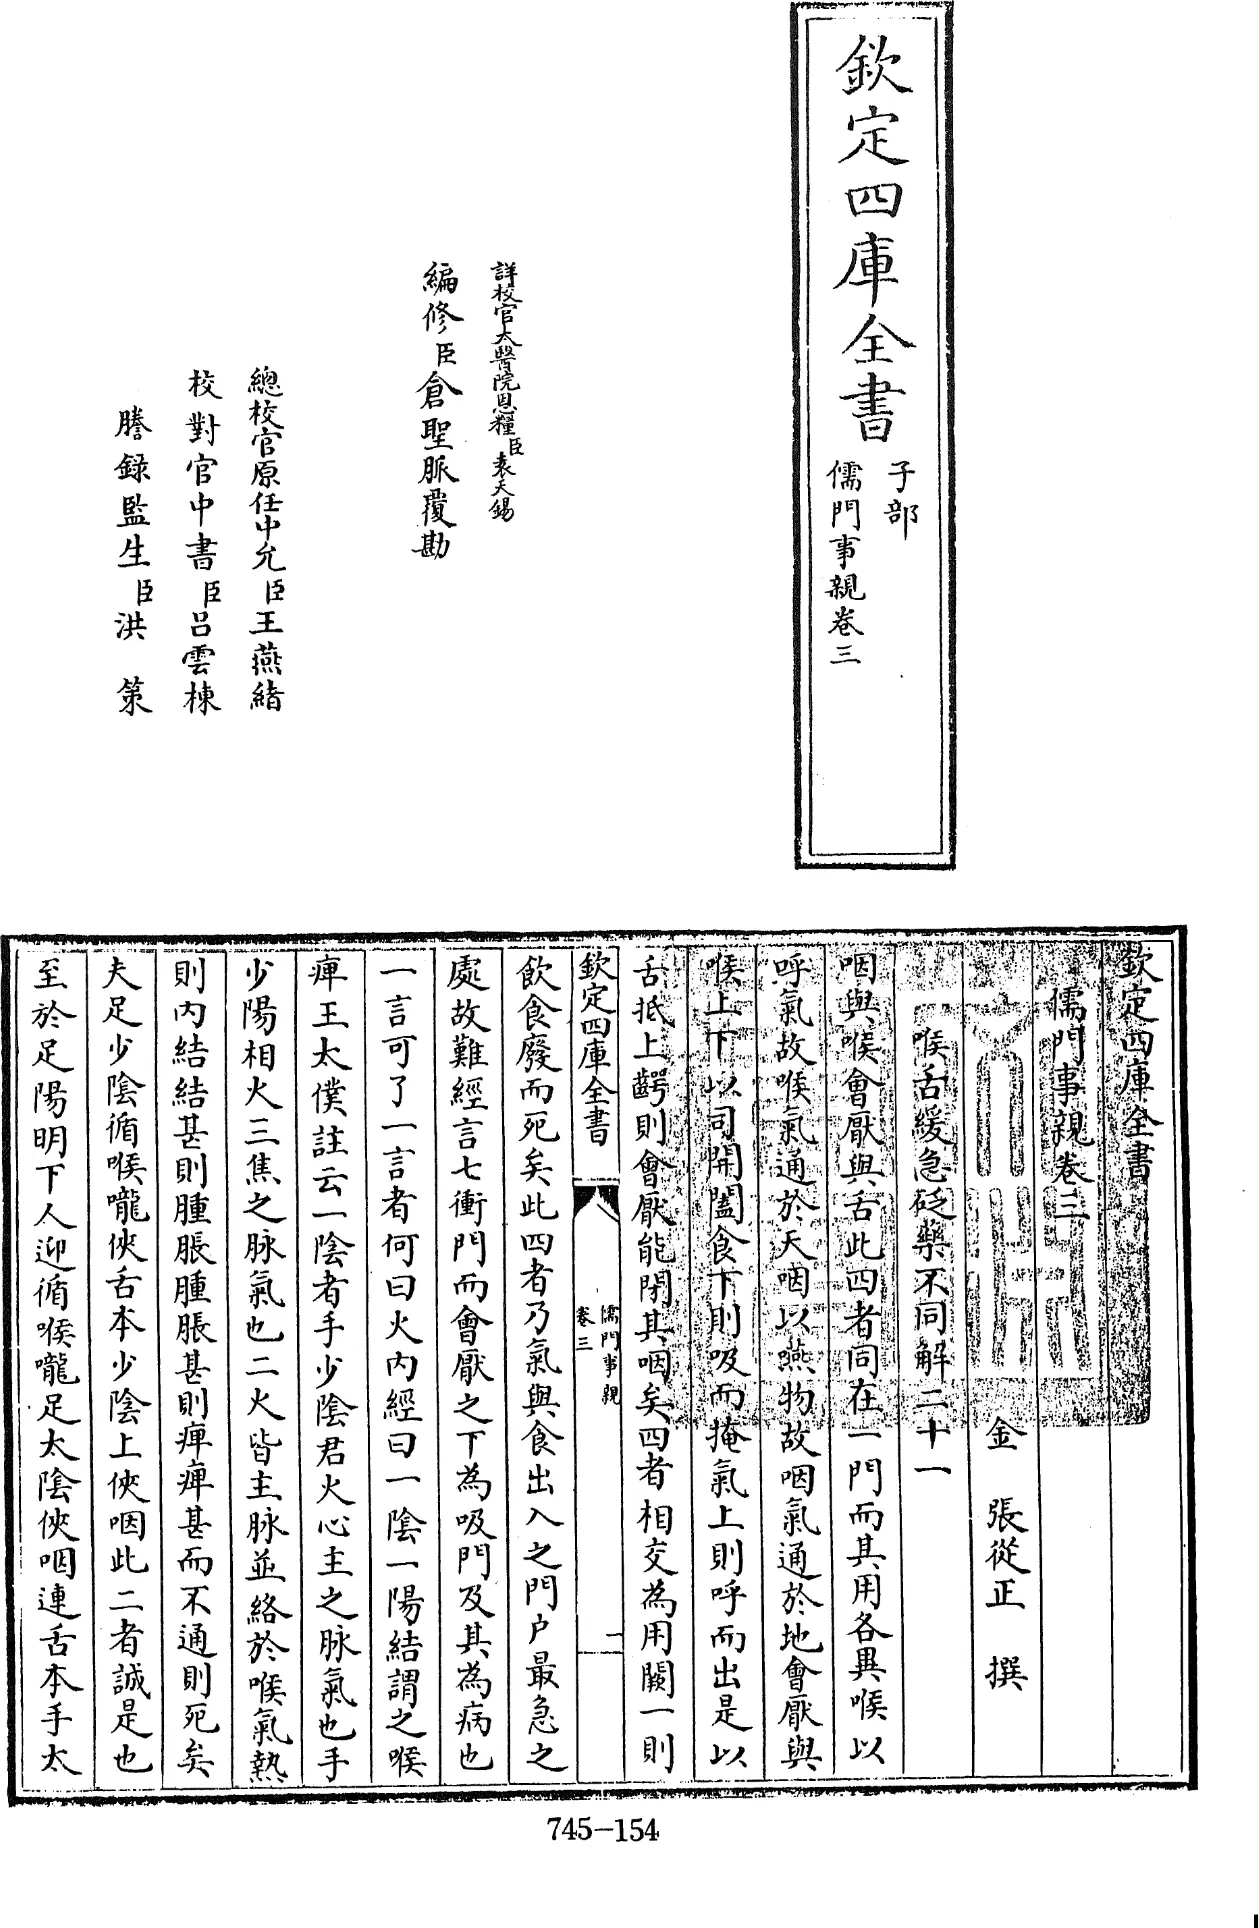 欽定四庫全書
子部
儒門事親卷三
詳校官太醫院恩糧臣袁天錫
編修臣倉聖脈覆勘
總校官原任中允臣王燕緒
校對官中書臣呂雲棟
謄錄監生臣洪策
欽定四庫全書
儒門事親卷三
金 張從正 撰
喉舌緩急砭藥不同解二十一
咽與喉會厭與舌此四者同在一門而其用各異喉以
呼氣故喉氣通於天咽以嚥物故咽氣通於地會厭與
喉上下以司開闔食下則吸而掩氣上則呼而出是以
舌抵上齶則會厭能閉其咽矣四者相交為用闕一則
欽定四庫全書
儒門事親
卷三
二
飲食廢而死矣此四者乃氣與食出入之門戶最急之
處故難經言七衝門而會厭之下為吸門及其為病也
一言可了一言者何曰火內經曰一陰一陽結謂之喉
痺王太僕註云一陰者手少陰君火心主之脉氣也手
少陽相火三焦之脉氣也二火皆主脉並絡於喉氣熱
則內結結甚則腫脹腫脹甚則痺痺甚而不通則死矣
夫足少陰循喉嚨俠舌本少陰上俠咽此二者誠是也
至於足陽明下人迎循喉嚨足太陰俠咽連舌本手太
745-154